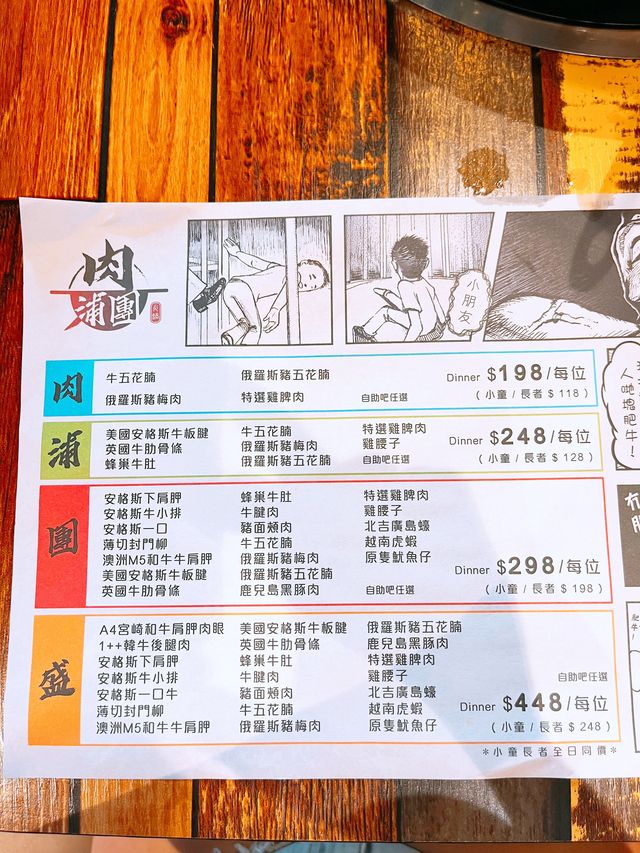 肉
浦團
小朋友
肉
牛五花腩 俄羅斯豬五花腩 Dinner $198/每位
俄羅斯豬梅肉 特選雞脾肉 自助吧任選 (小童/長者 $118)
浦
美國安格斯牛板腱 牛五花腩 特選雞脾肉
英國牛肋骨條 俄羅斯豬梅肉 雞腰子 Dinner $248/每位
蜂巢牛肚 俄羅斯豬五花腩 自助吧任選 (小童/長者 $128)
團
安格斯下肩胛 蜂巢牛肚 特選雞脾肉
安格斯牛小排 牛腱肉 雞腰子
安格斯一口 豬面頰肉 北吉廣島蠔
薄切封門柳 牛五花腩 越南虎蝦
澳洲M5和牛牛肩胛 俄羅斯豬梅肉 原隻魷魚仔
美國安格斯牛板腱 俄羅斯豬五花腩 Dinner $298/每位
英國牛肋骨條 鹿兒島黑豚肉 自助吧任選 (小童/長者 $198)
盛
A4宮崎和牛肩胛肉眼 美國安格斯牛板腱 俄羅斯豬五花腩
1++韓牛後腿肉 英國牛肋骨條 鹿兒島黑豚肉
安格斯下肩胛 蜂巢牛肚 特選雞脾肉
安格斯牛小排 牛腱肉 雞腰子 自助吧任選
安格斯一口牛 豬面頰肉 北吉廣島蠔
薄切封門柳 牛五花腩 越南虎蝦 Dinner $448/每位
澳洲M5和牛牛肩胛 俄羅斯豬梅肉 原隻魷魚仔 (小童/長者 $248)
*小童長者全日同價*